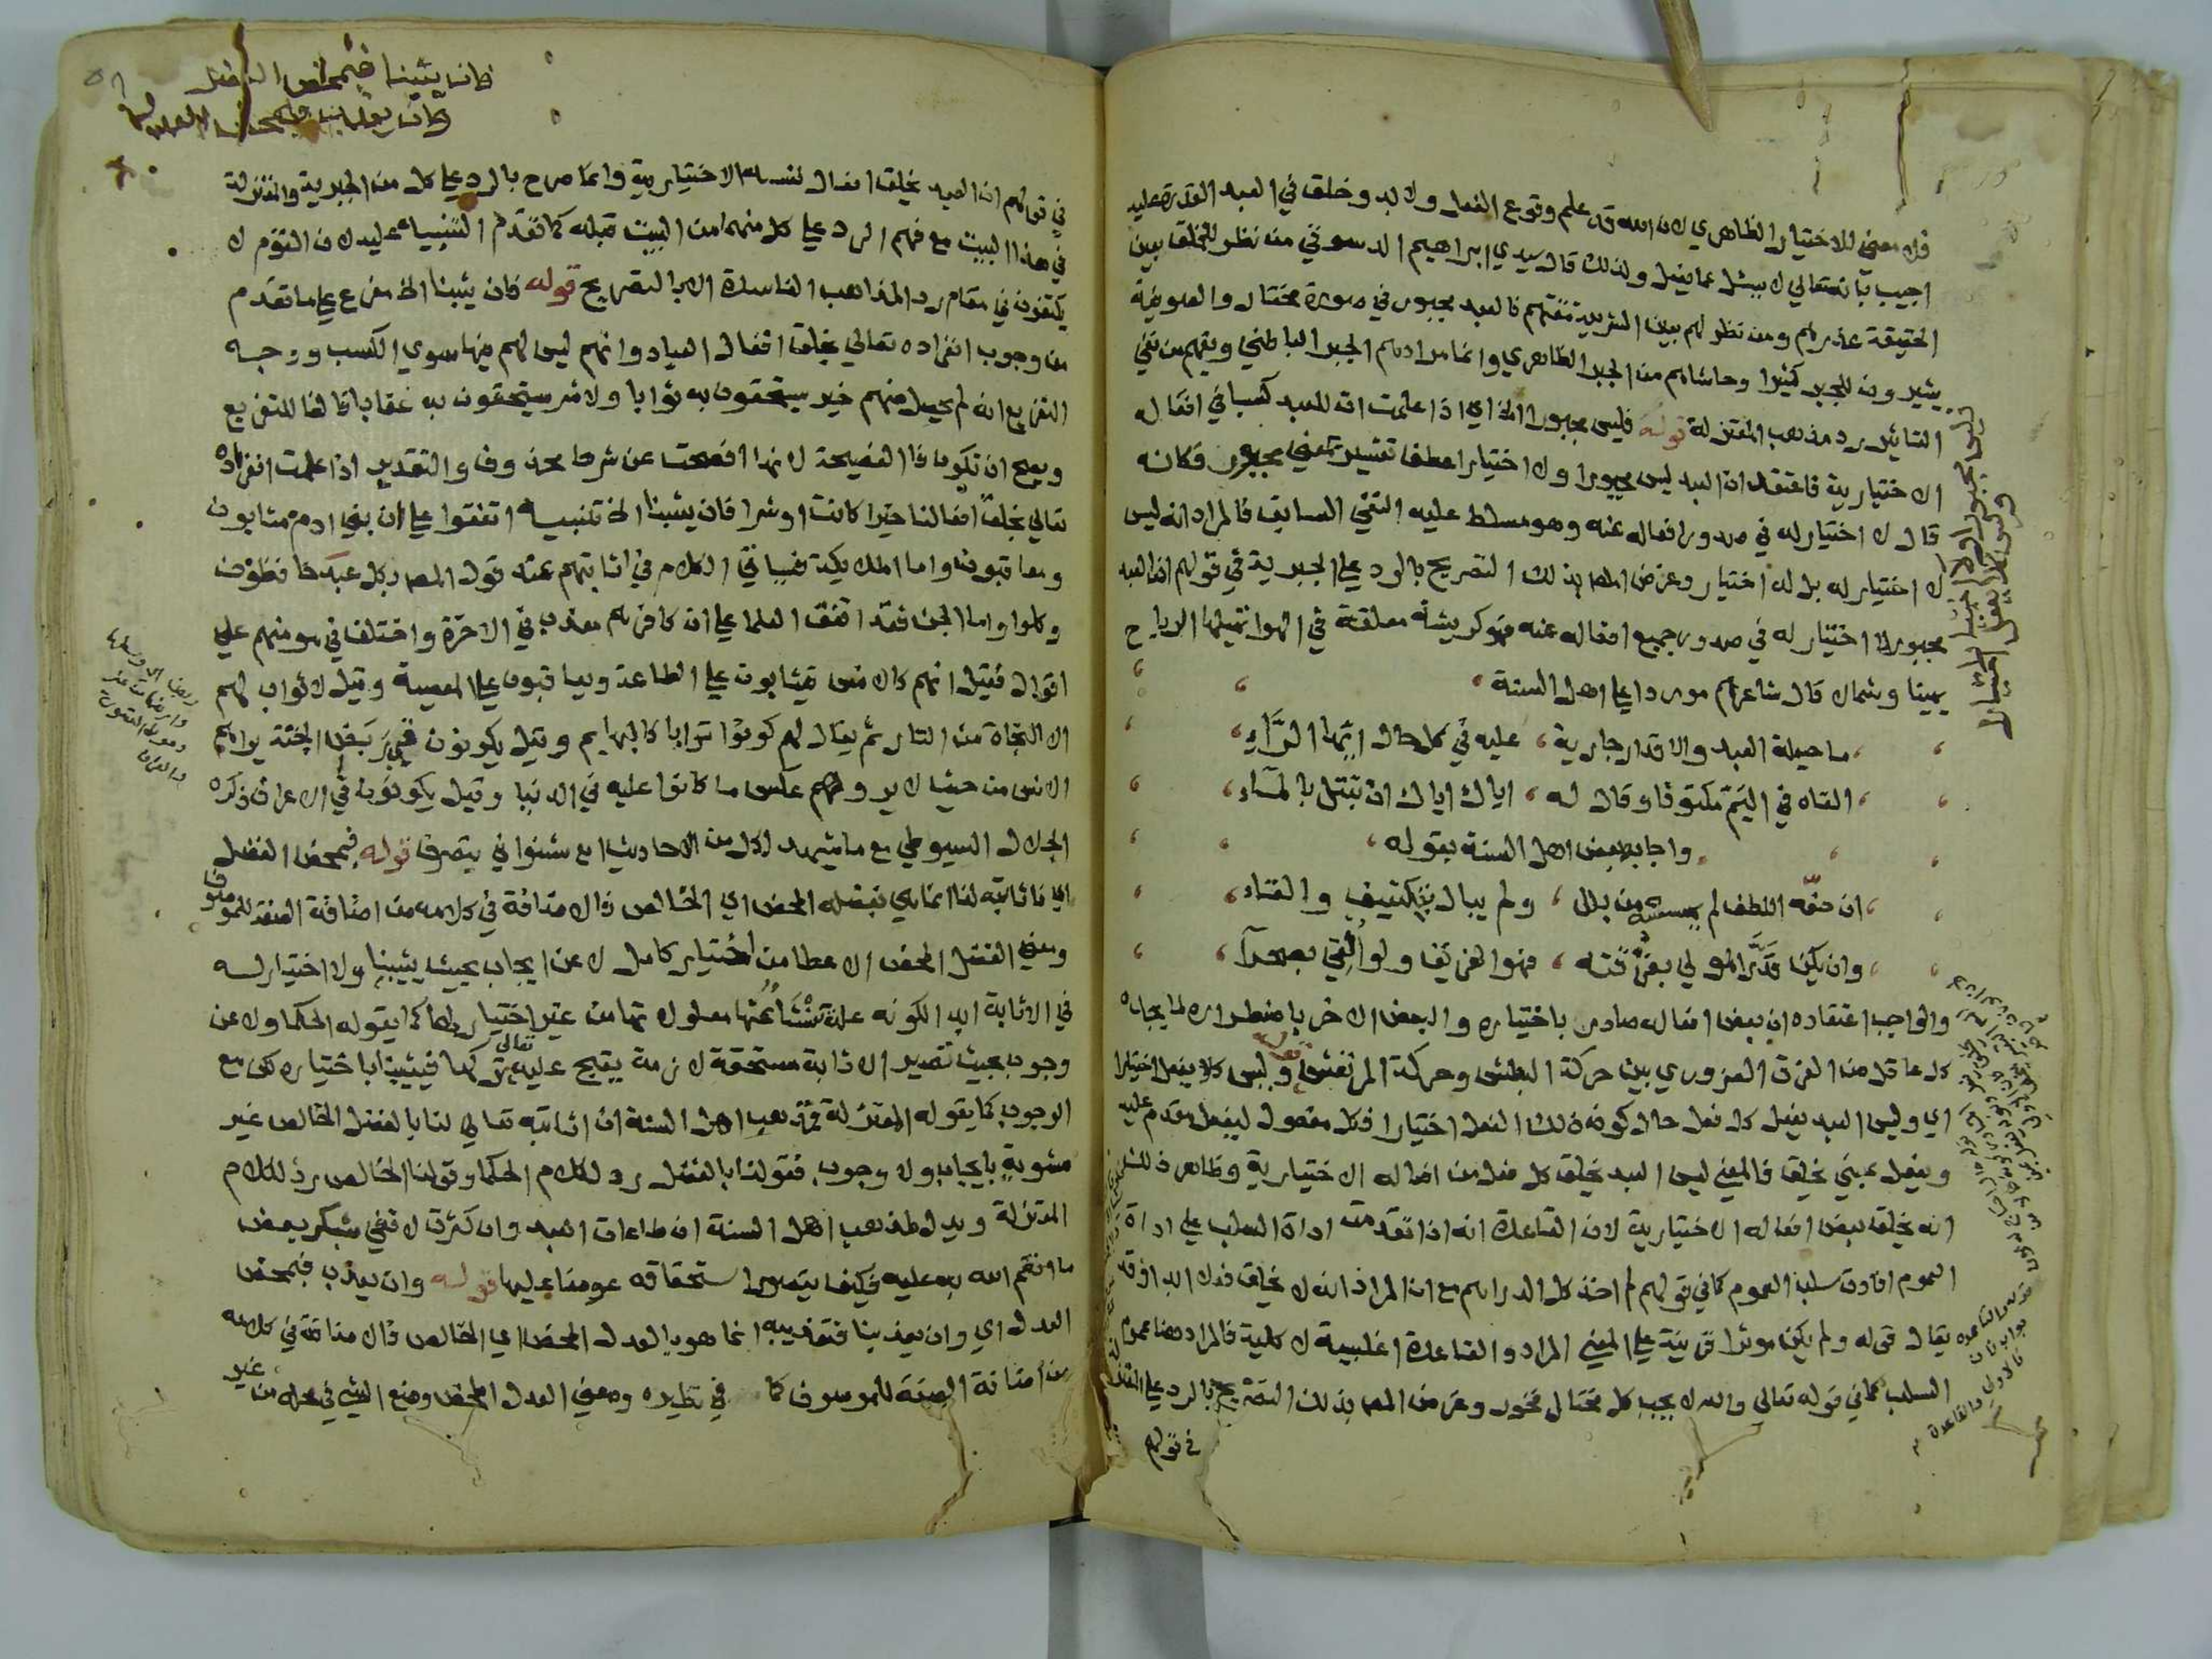 فلا معني للاختيار الظاهري لان الله قد علم وقوع الفعل ولابد وخلق في العبد القدرة عليه
اجيب بانه تعالي لا يسئل عما يفعل ولذلك قال سيدي ابراهيم الدسوقي من نظر للخلق بعين
الحقيقة عذرهم ومن نظر لهم بعين الشريعة مقتهم فالعبد مجبور في صورة مختار والصوفية
يشيرون للجبر كثيرا وحاشاهم من الجبر الظاهري وانما مرادهم الجبر الباطني ويفهم من نفي
التاثير رد مذهب المعتزلة قوله فليس مجبورا الخ اي اذا علمت ان للعبد كسبا في افعاله
الاختيارية فاعتقد ان العبد ليس مجبورا ولا اختيارا عطف تفسير لمعني مجبور فكانه
قال لا اختيار له في صدور افعاله عنه وهو مسلط عليه النفي السابق فالمراد انه ليس
لا اختيار له بل له اختيار وغرض المص بذلك التصريح بالرد علي الجبرية في قولهم ان العبد
مجبور لا اختيار له في صدور جميع افعاله عنه فهو كريشة معلقة في الهوا تميلها الرياح
يمينا وشمالا قال شاعرهم موردا علي اهل السنة
ما حيلة العبد والاقدار جارية، عليه في كل حال ايها الرَّاءِ
القاه في اليَمّ مكتوفا وقال له، اياك اياك ان تبتل بالمآءِ
واجابه بعض اهل السنة بقوله
ان حفّه اللطف لم يمسسه من بلل، ولم يبال بتكتيف والقاء
وان يكن قدَّر المولي بغرقته، فهو الغريق ولو اُلقي بصحرآ
والواجب اعتقاده ان بعض افعاله صادر باختياره والبعض الاخر باضطراره لما يجده
كل عاقل من الفرق الضروري بين حركة البطش وحركة المرتعش قوله وليس كلا يفعل اختيارا
اي وليس العبد يفعل كل فعل حال كونه ذلك الفعل اختيارا فكل مفعول ليفعل مقدم عليه
ويفعل بمعني يخلق فالمعني ليس العبد يخلق كل فعل من افعاله الاختيارية وظاهر ذلك
انه يخلق بعض افعاله الاختيارية لان القاعدة انه اذا تقدمت اداة السلب علي اداة
العموم افادت سلب العموم كما في قولهم لم اخذ كل الدراهم مع ان المراد انه لا يخلق
يقال قوله ولم يكن موثرا قرينة علي المعني المراد والقاعدة اغلبية لا كلية فالمراد هنا عموم
السلب كما في قوله تعالي والله لا يحب كل مختال فخور وغرض المص بذلك التصريح بالرد علي
في قولهم
فليس مجبورا ولا اختيارا
وليس كلا يفعل اختيارا
فان يثبنا فبمحض الفضل
وان يعذب فبمحض العدل
في قولهم ان العبد يخلق افعال نفسه الاختيارية وانما صرح بالرد علي كل من الجبرية والمعتزلة
في هذا البيت مع فهم الرد علي كل منهما من البيت قبله كما تقدم التنبيه عليه لان القوم لا
يكتفون في مقام رد المذاهب الفاسدة الا بالتصريح قوله فان يثبنا الخ مفرع علي ما تقدم
من وجوب انفراده تعالي بخلق افعال العباد وانهم ليس لهم فيها سوي الكسب ووجه
التفريع انه لم يحصل منهم خير يستحقون به ثوابا ولا شر يستحقون به عقابا فالفا للتفريع
ويصح ان تكون فا الفصيحة لانها افصحت عن شرط محذوف والتقدير اذا علمت انفراده
تعالي بخلق افعالنا خيرا كانت او شرا فان يثبنا الخ تنبيه اتفقوا علي ان بني ادم مثابون
ومعاقبون واما الملائكة فسياتي الكلام في اثابتهم عند قول المص بكل عبد حافظون
وكلوا واما الجن فقد اتفق العلما علي ان كافرهم معذب في الاخرة واختلف في مومنهم علي
اقوال فقيل انهم كالانس فيثابون علي الطاعة ويعاقبون علي المعصية وقيل لا ثواب لهم
الا النجاة من النار ثم يقال لهم كونوا ترابا كالبهايم وقيل يكونون في ربض الجنة يراهم
الانس من حيث لا يروهم عكس ما كانوا عليه في الدنيا وقيل يكونون في الاعراف ذكره
الجلال السيوطي مع ما يشهد لكل من الاحاديث اه شنواني بتصرف قوله فبمحض الفضل
اي فاثابته لنا انما هي بفضله المحض اي الخالص فالاضافة في كلامه من اضافة الصفة للموصوف
ومعني الفضل المحض الاعطا من اختيار كامل لا عن ايجاب بحيث يثيبنا ولا اختيار له
في الاثابة ابدا لكونه علة تنشأ عنها معلولاتها من غير اختيار لها كما يقوله الحكما ولا عن
وجوب بحيث تصير الاثابة مستحقة لازمة يقبح عليه تعالي تركها فيثيبنا باختياره لكن مع
الوجوب كما يقوله المعتزلة فمذهب اهل السنة ان اثابته تعالي لنا بالفضل الخالص غير
مشوبة بايجاب ولا وجوب فقولنا بالفضل رد لكلام الحكما وقولنا الخالص رد لكلام
المعتزلة ويدل لمذهب اهل السنة ان طاعات العبد وان كثرت لا تفي بشكر بعض
ما انعم الله به عليه فكيف يتصور استحقاقه عوضا عليها قوله وان يعذب فبمحض
العدل اي وان يعذبنا فتعذيبه انما هو بالعدل المحض اي الخالص فالاضافة في كلامه
من اضافة الصفة للموصوف كما في نظيره ومعني العدل المحض وضع الشي في محله من غير